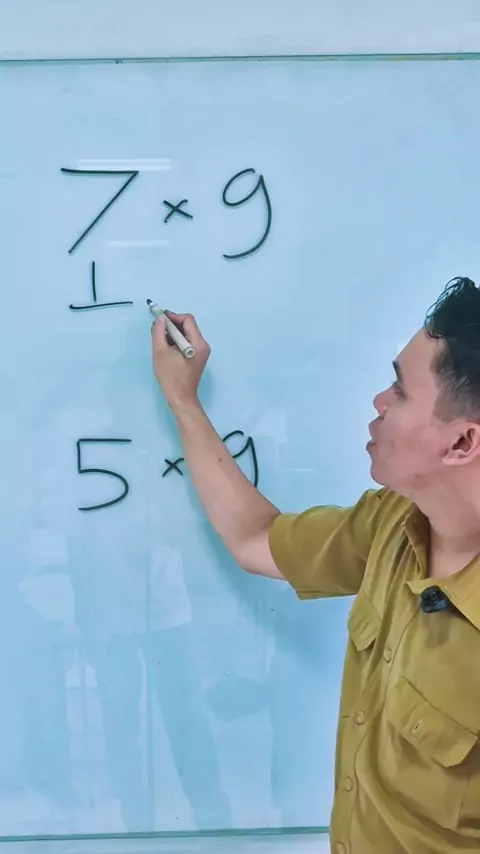 7 × 9
1
5 × 9